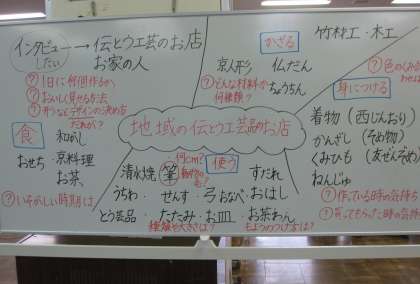 インタビューしたい → 伝とう工芸のお店
お家の人
？1日に何個作るか
？おいしく見せる方法
？作るデザインの決め方
だれが？
食
和がし
おせち・京料理
お茶
？いそがしい時期は
かざる
京人形 仏だん
？どんな材料か
何種類？
ちょうちん
竹材工・木工
？色の
身につける
着物（西じんおり）
かんざし（そめ物）
くみひも（友ぜんぞめ）
ねんじゅ
？作っている時の気持ち
？買ってもらった時の気持
地域の伝とう工芸品のお店
清水焼 筆
何cm？
動物の毛？
使う
すだれ
うちわ・せんす・弓 おなべ・おはし
とう芸品 たたみ・お皿 お茶わん
種類や大きさは？ もようのつけ方は？